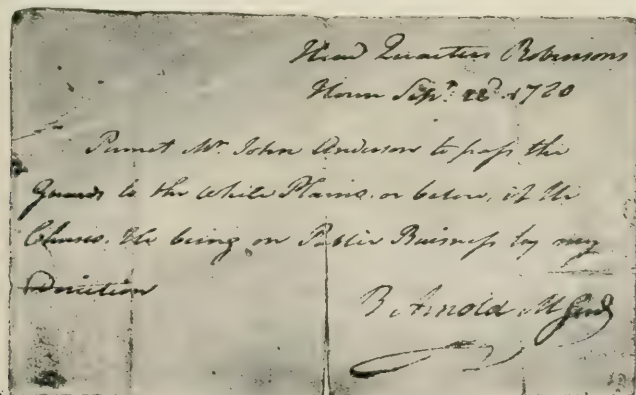 Head Quarters Robinsons
House Sepr. 22d. 1780
Permit Mr. John Anderson to pass the
Guards to the White Plains, or below, if He
Chuses. He being on Public Buisness by my
Direction
B. Arnold M Genl